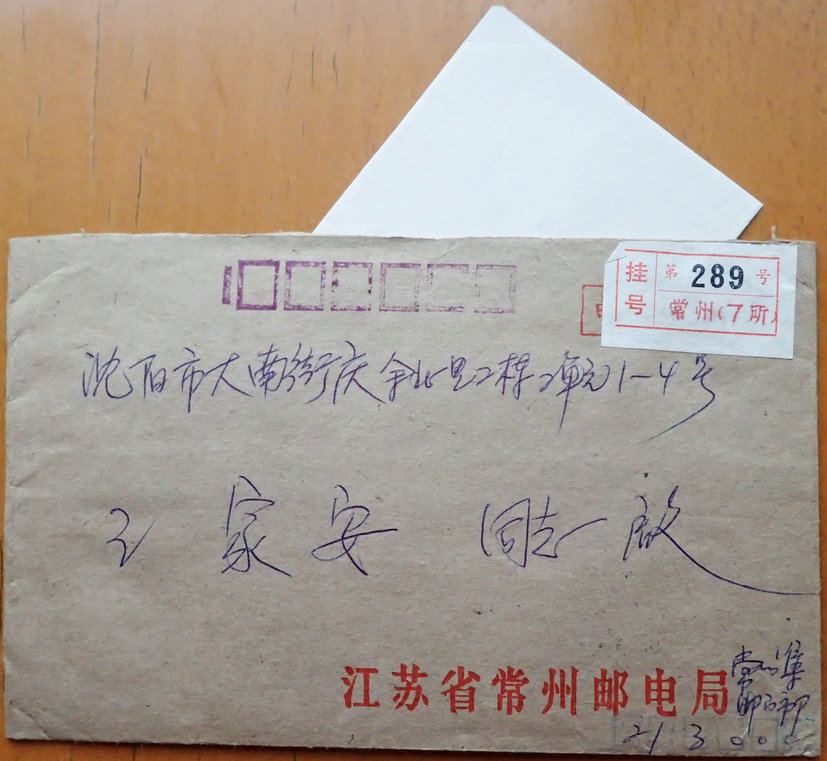 挂号 第 289 号
常州(7所)
沈阳市大南街庆余北里2栋2单元1-4号
王家安 同志 启
江苏省常州邮电局
常州集邮
213000